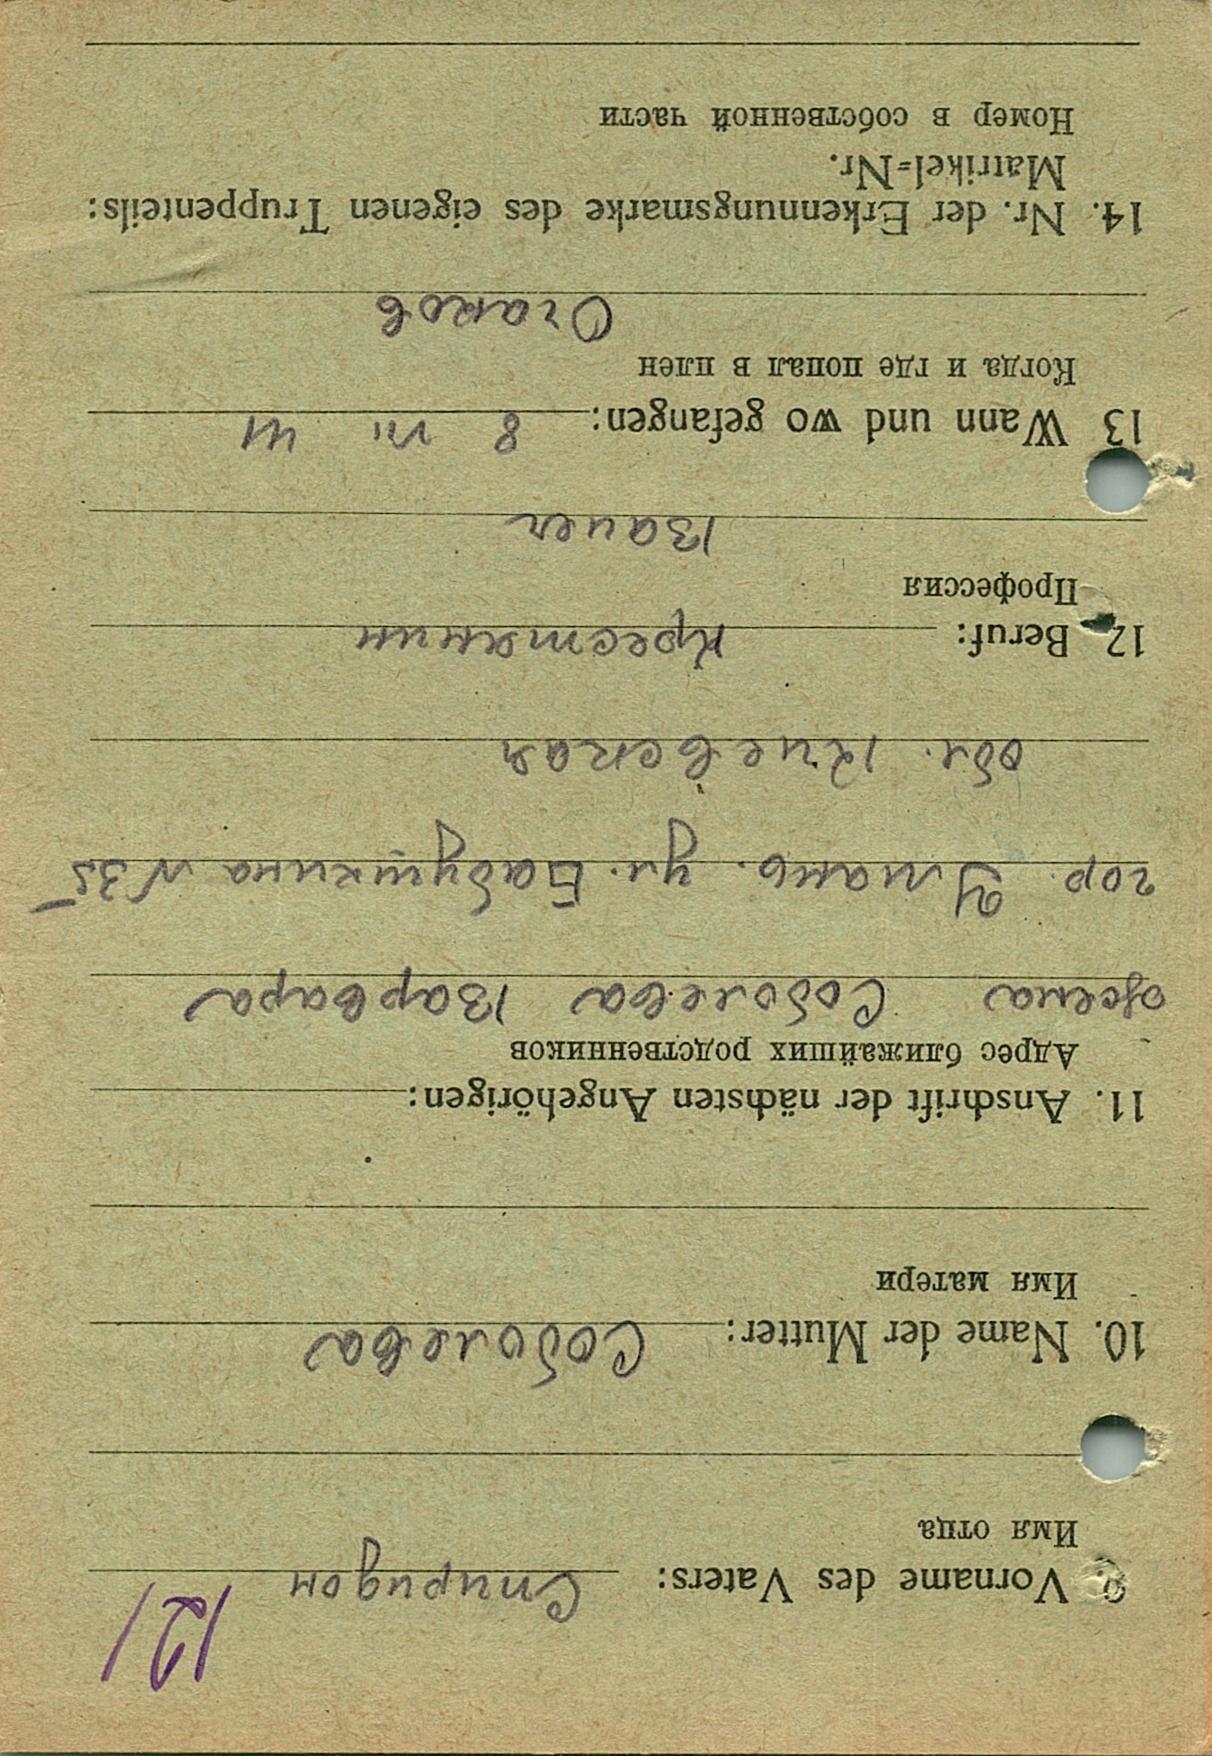 121
9. Vorname des Vaters: Спиридон
Имя отца
10. Name der Mutter: Соболева
Имя матери
11. Anschrift der nächsten Angehörigen:
Адрес ближайших родственников
жена Соболева Варвара
гор. Умань. ул. Бабушкина N 35
обл. Киевская
12. Beruf: Крестянин
Профессия
Bauer
13 Wann und wo gefangen: 8 41
Когда и где попал в плен
Очаков
14. Nr. der Erkennungsmarke des eigenen Truppenteils:
Matrikel=Nr.
Номер в собственной части